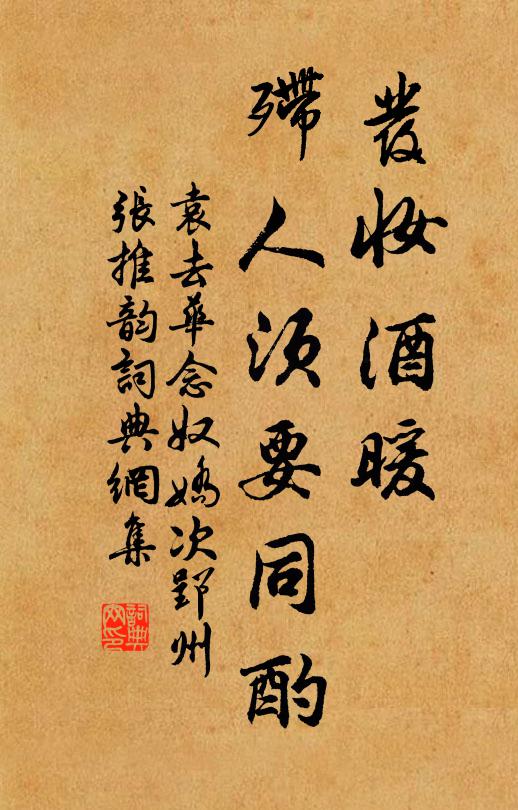 發妝酒暖
殢人須要同酌
袁去華念奴嬌次郢州
張推韵詞典網集
詞典
网印